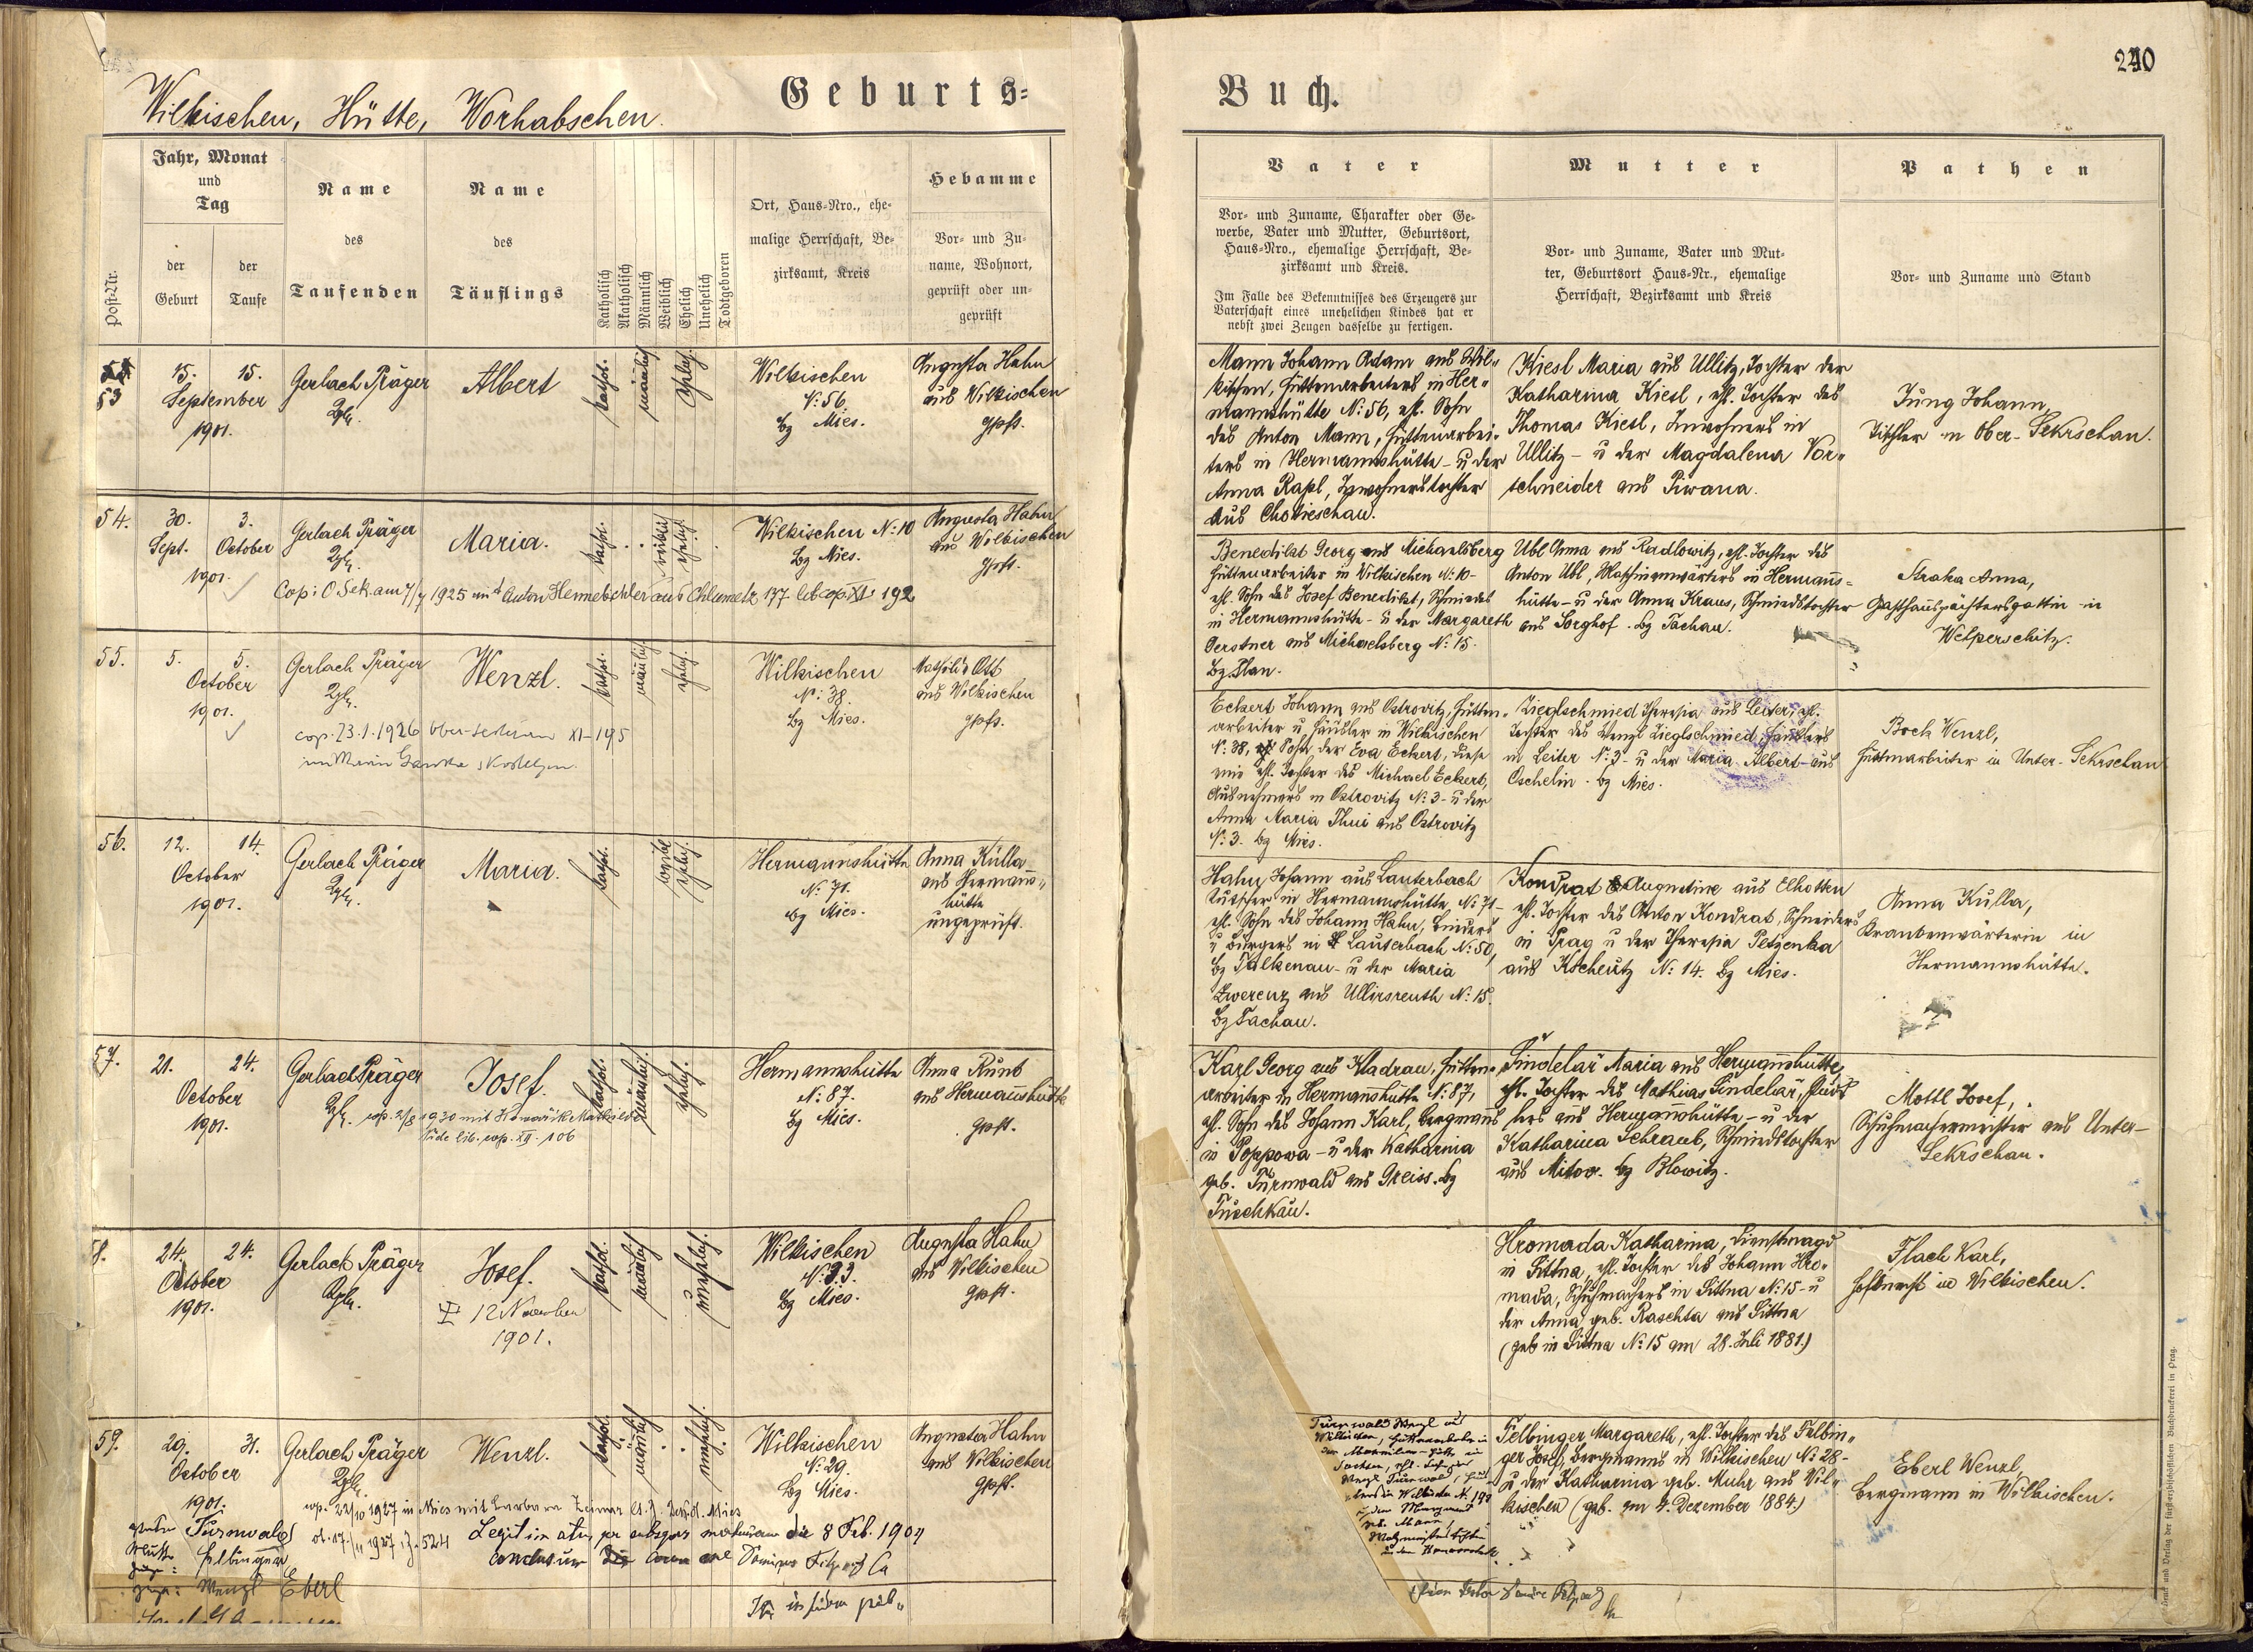 240
Geburts=
Buch.
Wilkischen, Hütte, Worhabschen.
Post-Nr.
Jahr, Monat
und
Tag
der
Geburt
der
Taufe
Name
des
Taufenden
Name
des
Täuflings
Katholisch
Akatholisch
Männlich
Weiblich
Ehelich
Unehelich
Todtgeboren
Ort, Haus-Nro., ehe-
malige Herrschaft, Be-
zirksamt, Kreis
Hebamme
Vor- und Zu-
name, Wohnort,
geprüft oder un-
geprüft
Vater
Vor- und Zuname, Charakter oder Ge-
werbe, Vater und Mutter, Geburtsort,
Haus-Nro., ehemalige Herrschaft, Be-
zirksamt und Kreis.
Im Falle des Bekenntnisses des Erzeugers zur
Vaterschaft eines unehelichen Kindes hat er
nebst zwei Zeugen dasselbe zu fertigen.
Mutter
Vor- und Zuname, Vater und Mut-
ter, Geburtsort Haus-Nr., ehemalige
Herrschaft, Bezirksamt und Kreis
Pathen
Vor- und Zuname und Stand
53
15. 15.
September
1901.
Gerlach Präger
Albert
kathol.
männlich
ehelich
Wilkischen
N: 56
bz Mies.
Augusta Hahn
aus Wilkischen
gpft.
Mann Johann Adam aus Wil-
kischen, Hüttenarbeiters in Her-
mannshütte N: 56, ehl. Sohn
des Anton Mann, Hüttenarbei-
ters in Hermannshütte - u der
Anna Rapl, Inwohnerstochter
aus Chotieschau.
Kiesl Maria aus Ullitz, Tochter der
Katharina Kiesl, ehl. Tochter des
Thomas Kiesl, Inwohners in
Ullitz - u der Magdalena Vor-
schneider aus Piwana.
Jung Johann,
Tischler in Ober-Sekrschan.
54.
30. 3.
Sept. October
1901.
Gerlach Präger
Maria.
kathol.
weiblich
ehelich
Wilkischen N: 10
bz Mies.
Augusta Hahn
aus Wilkischen
gpft.
Cop: O Sek. am 7/7 1925 mit Anton Hennebichler aus Chlumetz 177 lib cop. XI. 192
Benedikt Georg aus Michaelsberg
Hüttenarbeiter in Wilkischen N: 10 -
ehl. Sohn des Josef Benedikt, Schmiedes
in Hermannshütte - u der Margareth
Gerstner aus Michaelsberg N: 15.
bz Plan.
Ubl Anna aus Radlowitz, ehl. Tochter des
Anton Ubl, Maschinenwärters in Hermanns-
hütte - u der Anna Kraus, Schmiedstochter
aus Sorghof. bz Tachau.
Straka Anna,
Gasthauspächtersgattin in
Welperschitz.
55.
5. 5.
October
1901.
Gerlach Präger
Wenzl.
kathol.
männlich
ehelich
Wilkischen
N: 38.
bz Mies.
Mathilde Ott
aus Wilkischen
gpft.
cop. 23.1.1926 Ober-Sekrschan XI-195
Eckert Johann aus Ostrovitz, Hütten-
arbeiter u Häusler in Wilkischen
N: 38, Sohn der Eva Eckert, diese
wie ehl. Tochter des Michael Eckert,
Ausnehmers in Ostrovitz N: 3 - u der
Anna Maria Thui aus Ostrovitz
N: 3. bz Mies.
Zieglschmied Theresia aus Leiter, ehl.
Tochter des Wenzl Zieglschmied, Häuslers
in Leiter N: 3 - u der Maria Albert aus
Oschelin. bz Mies.
Bock Wenzl,
Hüttenarbeiter in Unter-Sekrschan
56.
12. 14.
October
1901.
Gerlach Präger
Maria.
kathol.
weiblich
ehelich
Hermannshütte
N: 71.
bz Mies.
Anna Kulla
aus Hermanns-
hütte
ungeprüft.
Hahn Johann aus Lauterbach
Kutscher in Hermannshütte N: 71 -
ehl. Sohn des Johann Hahn, Binders
u Bürgers in Lauterbach N: 50,
bz Falkenau - u der Maria
Zwerenz aus Ullirsreuth N: 15.
bz Tachau.
Kondrat Augustine aus Elhotten
ehl. Tochter des Anton Kondrat, Schneiders
in Prag u der Theresia Petzenka
aus Kscheutz N: 14. bz Mies.
Anna Kulla,
Krankenwärterin in
Hermannshütte.
57.
21. 24.
October
1901.
Gerlach Präger
Josef.
kathol.
männlich
ehelich
Hermannshütte
N: 87.
bz Mies.
Anna Kunt
aus Hermannshütte
gpft.
cop. 2/8 1930 mit Mathilde
Vide lib. cop. XII. 106
Karl Georg aus Kladrau, Hütten-
arbeiter in Hermannshütte N: 87,
ehl. Sohn des Johann Karl, Bergmanns
in Poppowa - u der Katharina
geb. Turnwald aus Greiss. bz
Tuschkau.
Sindelař Maria aus Hermannshütte,
ehl. Tochter des Mathias Sindelař,
aus Hermannshütte - u der
Katharina Schraub, Schmiedstochter
aus Mitov. bz Blowitz.
Mottl Josef,
Schuhmachermeister aus Unter-
Sekrschan.
58.
24. 24.
October
1901.
Gerlach Präger
Josef.
12 November
1901.
kathol.
männlich
unehelich
Wilkischen
N: 33.
bz Mies.
Augusta Hahn
aus Wilkischen
gpft.
Hromada Katharina, Dienstmagd
in Sittna, ehl. Tochter des Johann Hro-
mada, Schuhmachers in Sittna N: 15 - u
der Anna geb. Raschta aus Sittna
(geb in Sittna N: 15 am 28. Juli 1881.)
Flach Karl,
Hofknecht in Wilkischen.
59.
29. 31.
October
1901.
Gerlach Präger
Wenzl.
kathol.
männlich
unehelich
Wilkischen
N: 29.
bz Mies.
Augusta Hahn
aus Wilkischen
gpft.
cop. 22/10 1927 in Mies mit Barbara
Vater Turnwald
Mutter Felbinger
Wenzl Eberl
Legitimatus per subsequens matrimonium die 8 Feb. 1904
Turnwald Wenzl aus
Wilkischen, Hüttenarbeiter in
Sachsen, ehl. Sohn des
Wenzl Turnwald,
geb. Mann,
Felbinger Margareth, ehl. Tochter des Felbin-
ger Josef, Bergmanns in Wilkischen N: 28 -
u der Katharina geb. Muhr aus Wil-
kischen (geb. am 4. Dezember 1884.)
Eberl Wenzl,
Bergmann in Wilkischen.
Druck und Verlag der fürsterzbischöflichen Buchdruckerei in Prag.